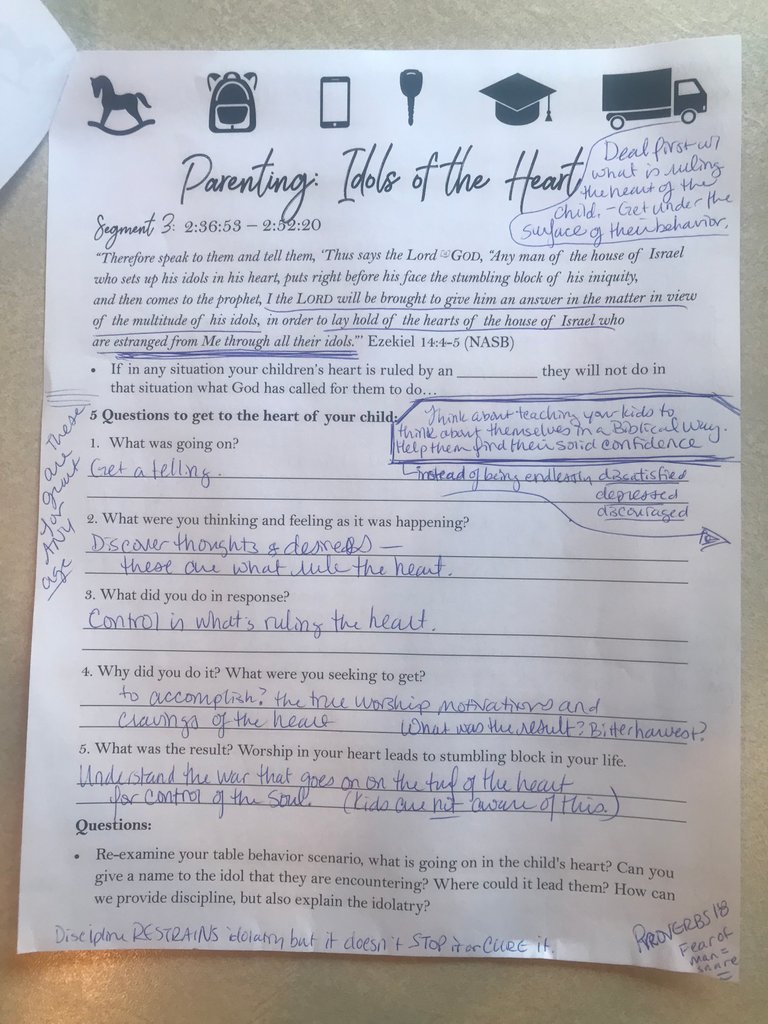 Parenting: Idols of the Heart
Deal first w/
what is ruling
the heart of the
child. - Get under the
surface of their behavior.
Segment 3: 2:36:53 – 2:52:20
"Therefore speak to them and tell them, 'Thus says the Lord GOD, "Any man of the house of Israel
who sets up his idols in his heart, puts right before his face the stumbling block of his iniquity,
and then comes to the prophet, I the LORD will be brought to give him an answer in the matter in view
of the multitude of his idols, in order to lay hold of the hearts of the house of Israel who
are estranged from Me through all their idols."' Ezekiel 14:4-5 (NASB)
• If in any situation your children's heart is ruled by an __________ they will not do in
that situation what God has called for them to do…
5 Questions to get to the heart of your child:
Think about teaching your kids to
think about themselves in a Biblical Way.
Help them find their solid confidence
instead of being endlessly dissatisfied
depressed
discouraged
these
are
great
for
ANY
age
1. What was going on?
Get a telling.
2. What were you thinking and feeling as it was happening?
Discover thoughts & desires —
these are what rule the heart.
3. What did you do in response?
Control is what's ruling the heart.
4. Why did you do it? What were you seeking to get?
to accomplish? the true worship motivations and
cravings of the heart
What was the result? Bitter harvest?
5. What was the result? Worship in your heart leads to stumbling block in your life.
Understand the war that goes on on the turf of the heart
for control of the soul. (Kids are not aware of this.)
Questions:
• Re-examine your table behavior scenario, what is going on in the child's heart? Can you
give a name to the idol that they are encountering? Where could it lead them? How can
we provide discipline, but also explain the idolatry?
Discipline RESTRAINS idolatry but it doesn't STOP it or CURE it.
PROVERBS
Fear of
man =
snare